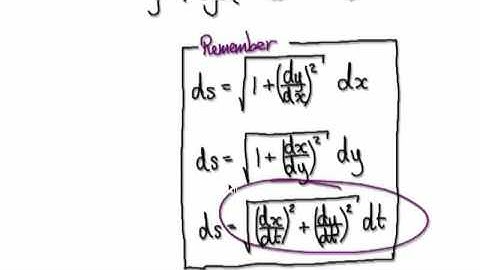 Remember
ds = √(1 + (dy/dx)²) dx
ds = √(1 + (dx/dy)²) dy
ds = √((dx/dt)² + (dy/dt)²) dt